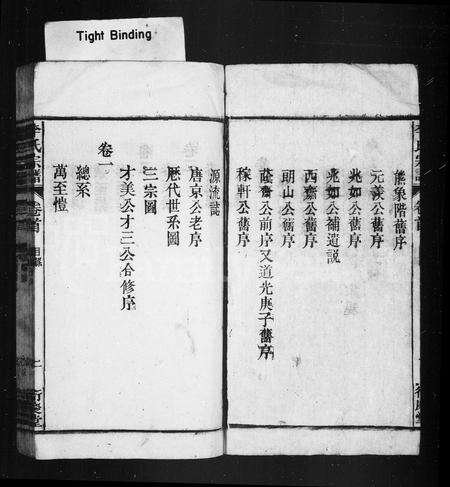 Tight Binding
熊象階舊序
元羲公舊序
兆如公舊序
兆如公補遺說
西齋公舊序
朗山公舊序
蔭喬公前序又道光庚子舊序
稼軒公舊序
李氏宗譜
卷首
源流誌
唐京公老序
歷代世系圖
三宗圖
才美公才三公合修序
卷一
總系
萬至愷
李氏宗譜
卷首
目錄